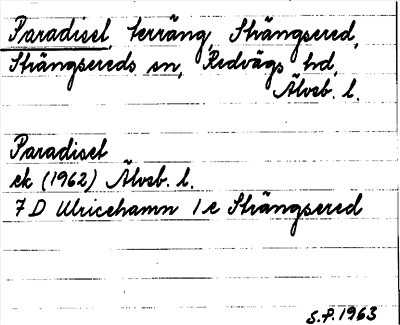 Paradiset, terräng, Strängsered,
Strängsereds sn, Redvägs hd,
Älvsb. l.
Paradiset
ek (1962) Älvsb. l.
7 D Ulricehamn 1 e Strängsered
S.P. 1963